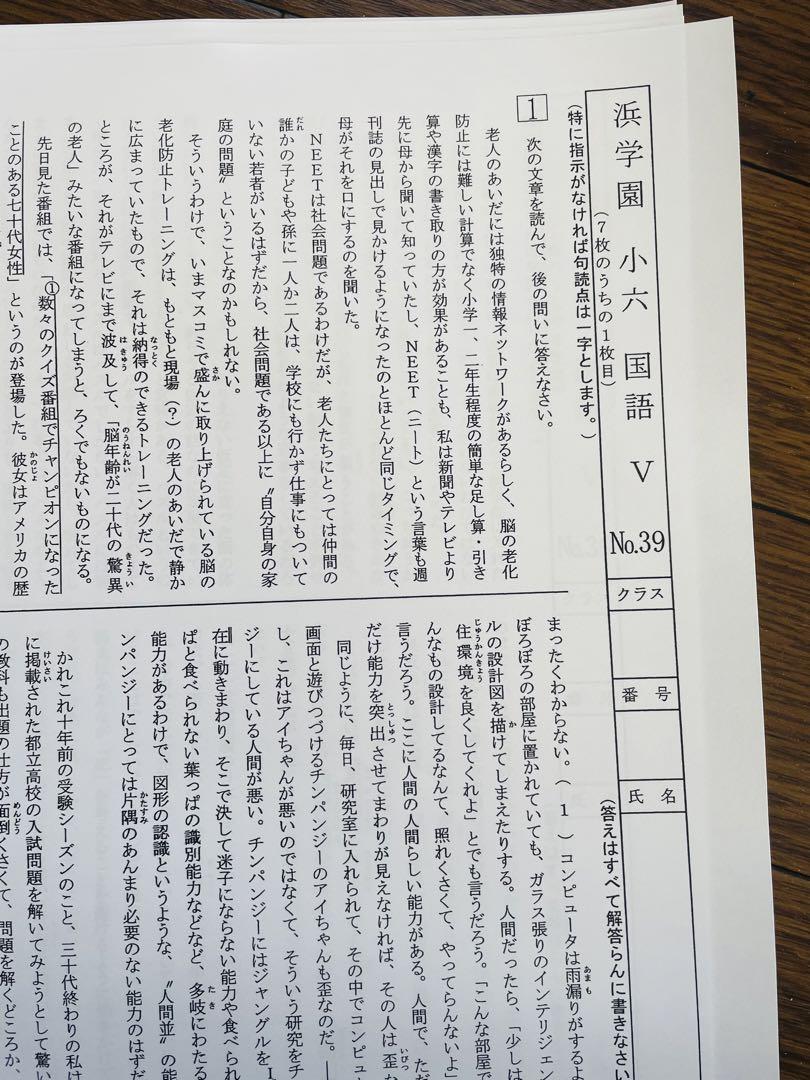 浜学園 小六 国語 Ⅴ No.39
クラス
番号
氏名
(7枚のうちの1枚目)
(特に指示がなければ句読点は一字とします。)
(答えはすべて解答らんに書きなさい
1 次の文章を読んで、後の問いに答えなさい。
老人のあいだには独特の情報ネットワークがあるらしく、脳の老化
防止には難しい計算でなく小学一、二年生程度の簡単な足し算・引き
算や漢字の書き取りの方が効果があることも、私は新聞やテレビより
先に母から聞いて知っていたし、NEET(ニート)という言葉も週
刊誌の見出しで見かけるようになったのとほとんど同じタイミングで、
母がそれを口にするのを聞いた。
NEETは社会問題であるわけだが、老人たちにとっては仲間の
誰かの子どもや孫に一人か二人は、学校にも行かず仕事にもついて
いない若者がいるはずだから、社会問題である以上に〝自分自身の家
庭の問題〟ということなのかもしれない。
そういうわけで、いまマスコミで盛んに取り上げられている脳の
老化防止トレーニングは、もともと現場(?)の老人のあいだで静か
に広まっていたもので、それは納得のできるトレーニングだった。
ところが、それがテレビにまで波及して、「脳年齢が二十代の驚異
の老人」みたいな番組になってしまうと、ろくでもないものになる。
先日見た番組では、「①数々のクイズ番組でチャンピオンになった
ことのある七十代女性」というのが登場した。彼女はアメリカの歴
まったくわからない。(1)コンピュータは雨漏りがするよ
ぼろぼろの部屋に置かれていても、ガラス張りのインテリジェン
ルの設計図を描けてしまえたりする。人間だったら、「少しは
住環境を良くしてくれよ」とでも言うだろう。「こんな部屋で
んなもの設計してるなんて、照れくさくて、やってらんないよ」
言うだろう。ここに人間の人間らしい能力がある。人間で、ただ
だけ能力を突出させてまわりが見えなければ、その人は歪な
同じように、毎日、研究室に入れられて、その中でコンピュ
画面と遊びつづけるチンパンジーのアイちゃんも歪なのだ。―
し、これはアイちゃんが悪いのではなくて、そういう研究をチ
ジーにしている人間が悪い。チンパンジーにはジャングルを
在に動きまわり、そこで決して迷子にならない能力や食べられ
ぱと食べられない葉っぱの識別能力などなど、多岐にわたる
能力があるわけで、図形の認識というような、〝人間並〟の能
ンパンジーにとっては片隅のあんまり必要のない能力のはずだ
かれこれ十年前の受験シーズンのこと、三十代終わりの私は
に掲載された都立高校の入試問題を解いてみようとして驚い
の教科も出題の仕方が面倒くさくて、問題を解くどころか、